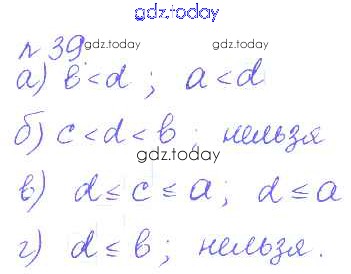 gdz.today
№ 39 gdz.today gdz.today
а) b < d ; a < d
б) c < d < b ; нельзя
gdz.today
в) d ≤ c ≤ a ; d ≤ a
г) d ≤ b ; нельзя.
gdz.today